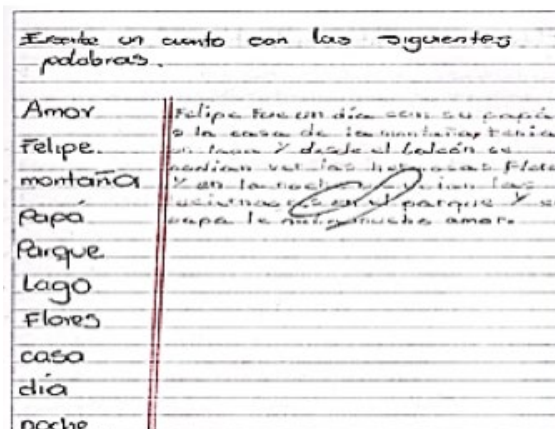 Escribe un cuento con las siguientes
palabras.
Amor
Felipe.
montaña
Papá
Parque
Lago
Flores
casa
día
noche
Felipe Fue un día con su papá
a la casa de la montaña, tenia
un lago y desde el balcón se
podian ver las hermosas Flore
y en la noche veian las
en el parque y su
papa le mucho amor.